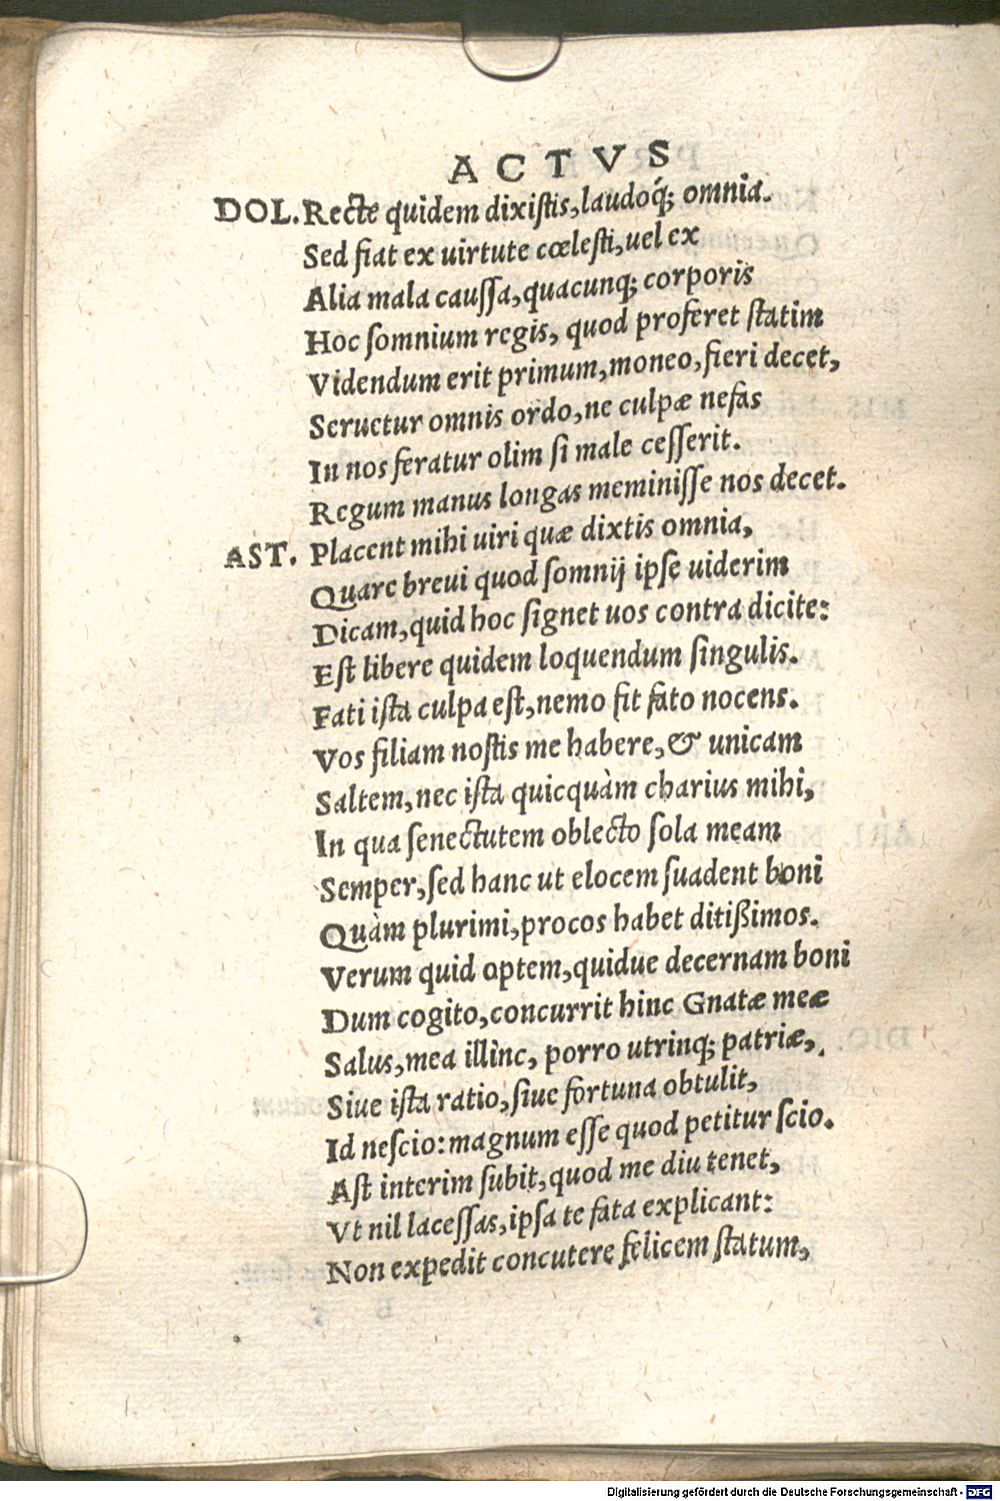 ACTVS
DOL. Recte quidem dixiſtis, laudoq́; omnia.
Sed fiat ex uirtute cœleſti, uel ex
Alia mala cauſſa, quacunq; corporis
Hoc ſomnium regis, quod proferet ſtatim
Videndum erit primum, moneo, fieri decet,
Seruetur omnis ordo, ne culpæ nefas
In nos feratur olim ſi male ceſſerit.
Regum manus longas meminiſſe nos decet.
AST. Placent mihi uiri quæ dixtis omnia,
Quare breui quod ſomnij ipſe uiderim
Dicam, quid hoc ſignet uos contra dicite:
Eſt libere quidem loquendum ſingulis.
Fati iſta culpa eſt, nemo fit fato nocens.
Vos filiam noſtis me habere, & unicam
Saltem, nec iſta quicquàm charius mihi,
In qua ſenectutem oblecto ſola meam
Semper, ſed hanc ut elocem ſuadent boni
Quàm plurimi, procos habet ditißimos.
Verum quid optem, quidue decernam boni
Dum cogito, concurrit hinc Gnatæ meæ
Salus, mea illìnc, porro utrinq; patriæ,
Siue iſta ratio, ſiue fortuna obtulit,
Id neſcio: magnum eſſe quod petitur ſcio.
Aſt interim ſubit, quod me diu tenet,
Vt nil laceſſas, ipſa te fata explicant:
Non expedit concutere felicem ſtatum,
Digitalisierung gefördert durch die Deutsche Forschungsgemeinschaft - DFG